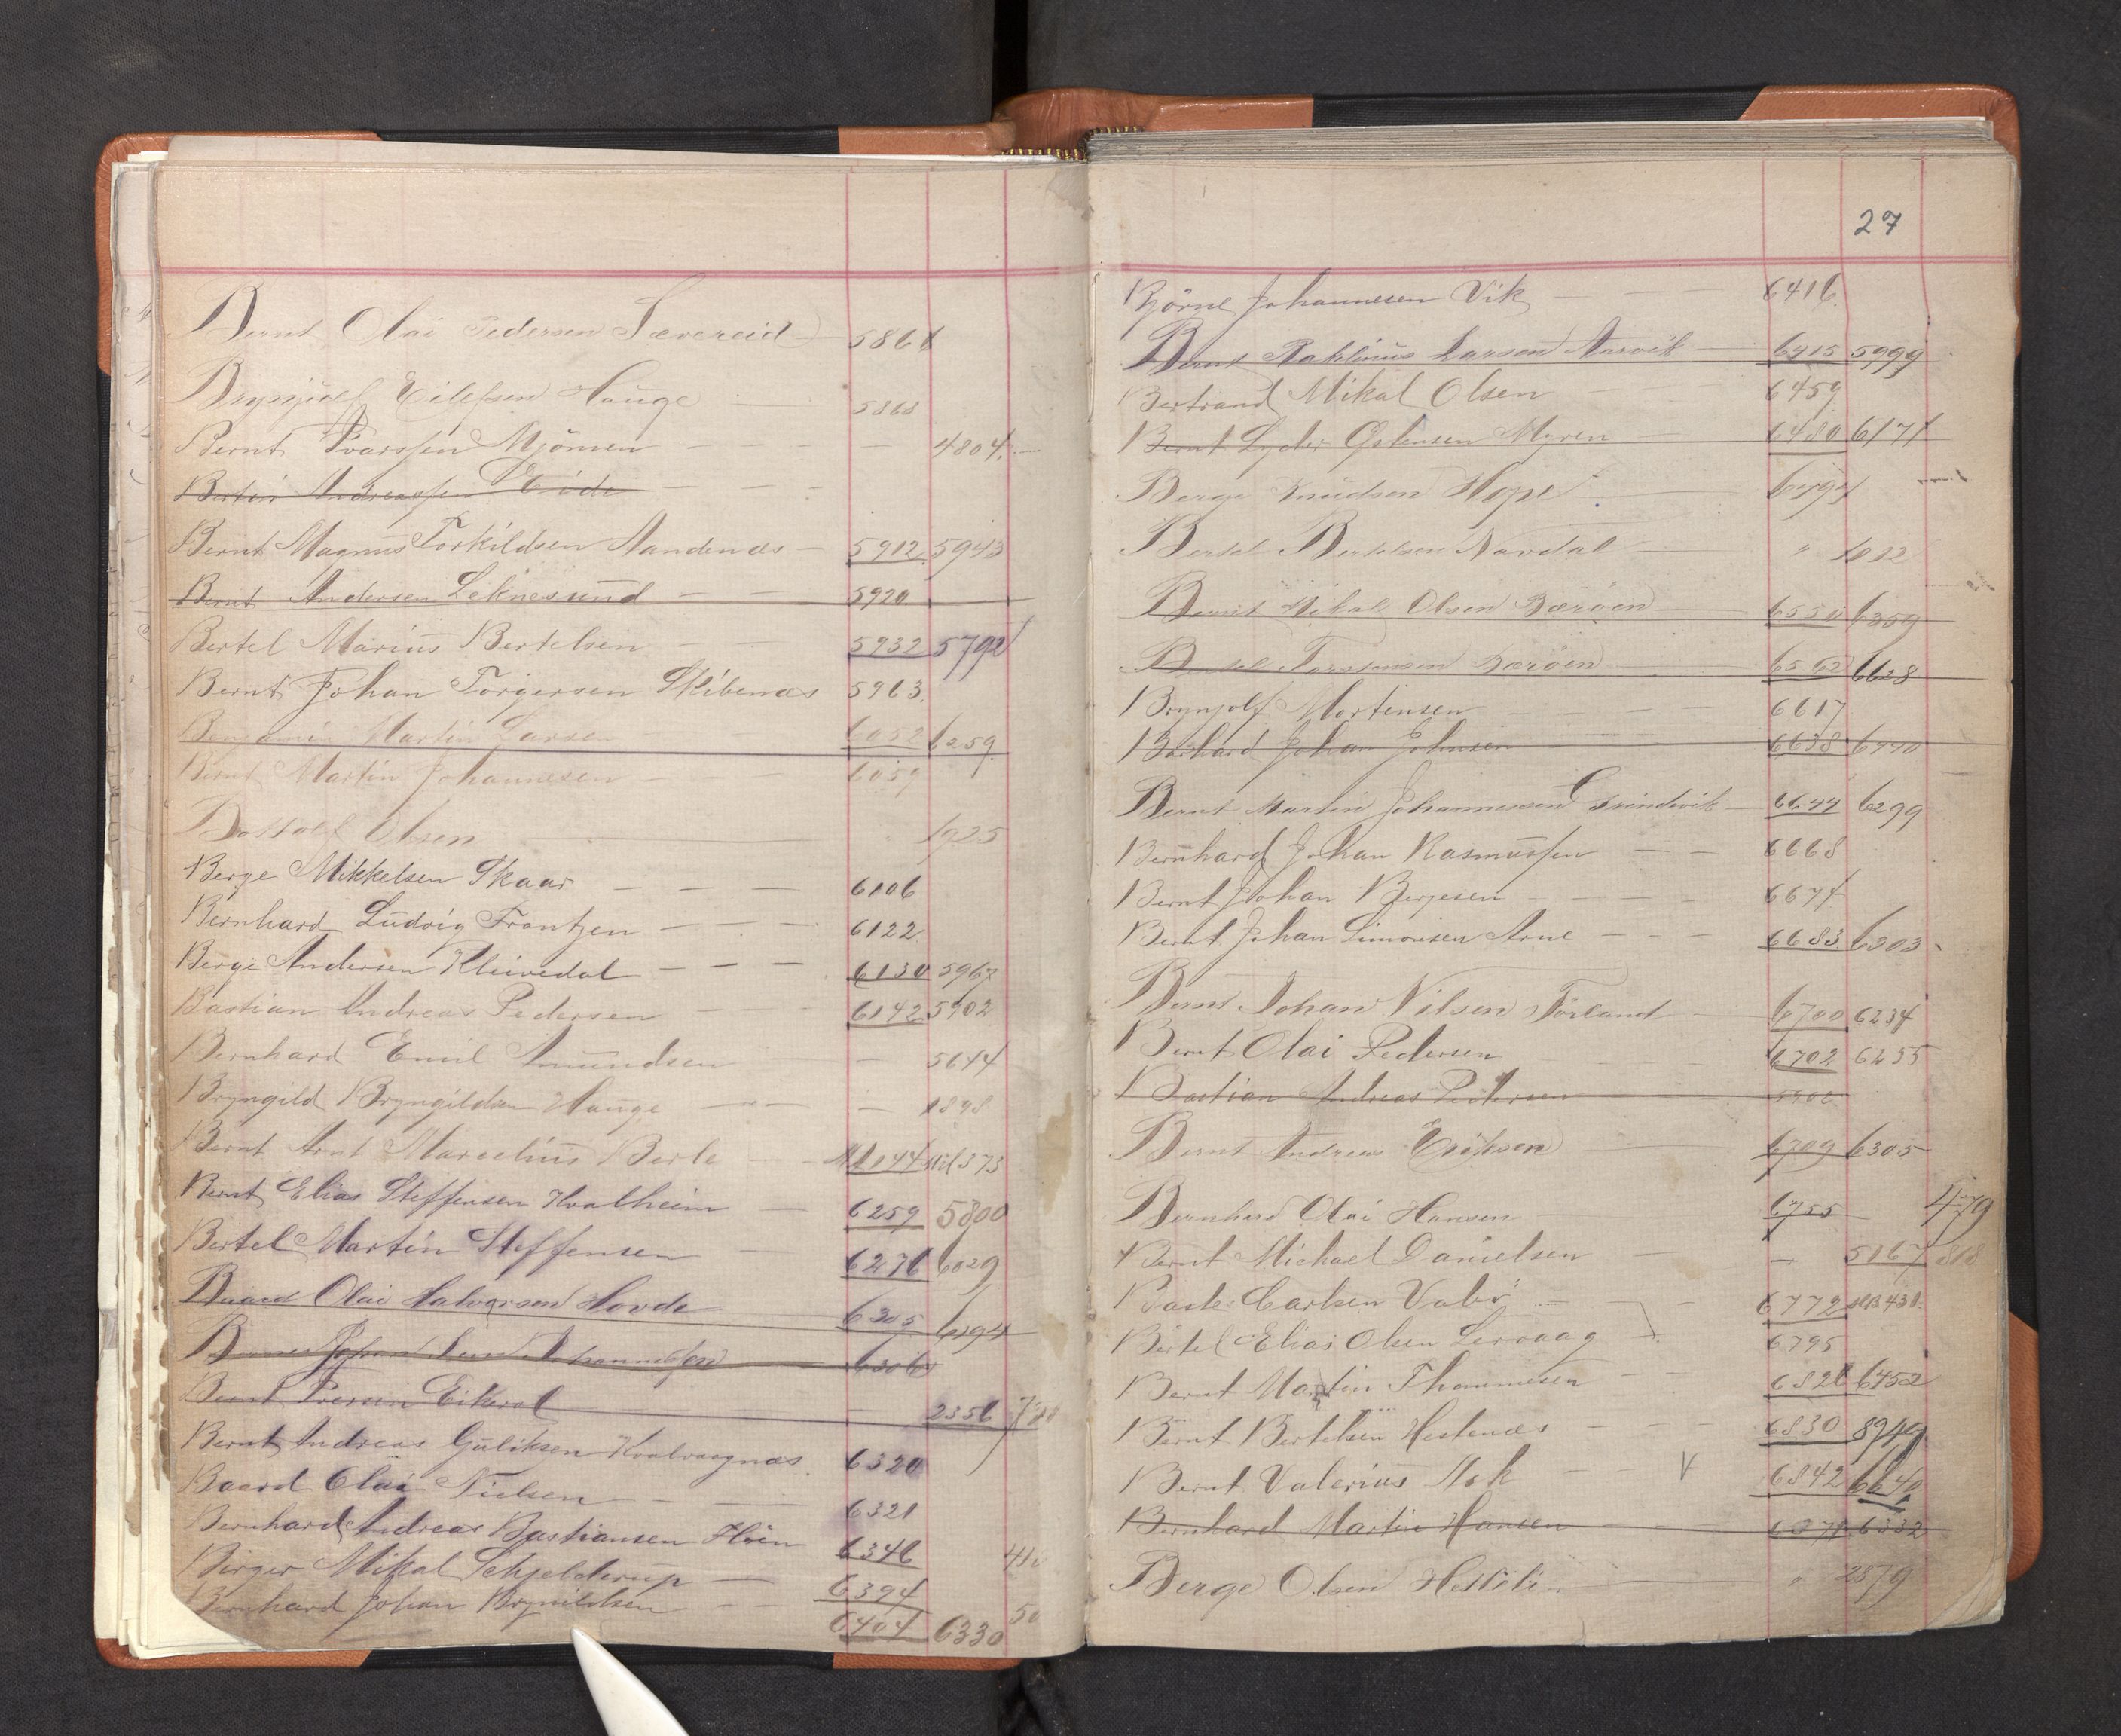 Bernt Olai Pedersen Sævereid 5861
Brynjulf Eilefsen Hauge 5868
Bernt Ivarssen Mjömen — — 4804
Bertin Andreassen Eide
Bernt Magnus Torkildsen Sandenæs 5912 5943
Bernt Andersen Leknesund 5920
Bertel Marius Bertelsen 5932 5792
Bernt Johan Torgersen Skibenæs 5963
Benjamin Martin Larsen 6052 6259
Bernt Martin Johannesen 6059
Bottolf Olsen 1925
Berge Mikkelsen Skaar 6106
Bernhard Ludvig Frantzen 6122
Berge Andersen Kleivedal 6130 5967
Bastian Andreas Pedersen 6142 5902
Bernhard Emil Amundsen — 5644
Bryngild Bryngildsen Hauge — 1898
Bernt Arnt Marcelius Berle 144 373
Bernt Elias Steffensen Hvalheim 6259 5800
Bertel Martin Steffensen 6276 6029
Baard Olai Halvorsen Hovde 6305 6294
Johan 6306
Bernt Iversen Eikerol 2356
Bernt Andreas Guliksen Kvalvaagnæs 6320
Baard Olai Nielsen 6321
Bernhard Andreas Bastiansen Höin 6346
Birger Mikal Schjelderup 6394
Bernhard Johan Brynildsen 6404 6330 50
27
Björne Johannesen Vik 6416
Bernt Larsen Narvik 6415 5999
Bertrand Mikal Olsen 6459
Bernt Lyder Östensen Myren 6480 6171
Berge Knudsen Hope 6494
Bertel Bertelsen Navdal "
Bernt Mikal Olsen Bæröen 6550 6359
Bertel Torstensen Bæröen 6562 6628
Brynjolf Mortensen 6617
Johan Johnsen 6638 6440
Bernt Martin Johannessen Grindevik 6644 6299
Bernhard Johan Rasmussen 6668
Bernt Johan Bergesen 6674
Bernt Johan Simonsen Arne 6683 6303
Bernt Johan Nilsen Förland 6700 6234
Bernt Olai Pedersen 6702 6255
Bastian Andreas Pedersen 5902
Bernt Andreas Eriksen 6709 6305
Bernhard Olai Hansen 6755 — 479
Bernt Michael Danielsen — 5167 818
Carlsen Valö 6772 431
Bertel Elias Olsen Lervaag 6795
Bernt Martin Thommesen 6826 6452
Bernt Bertelsen Hestenæs 6830 8949
Bernt Valerius Hok V 6842 6640
Bernhard Martin Hansen 6332
Berge Olsen " 2879